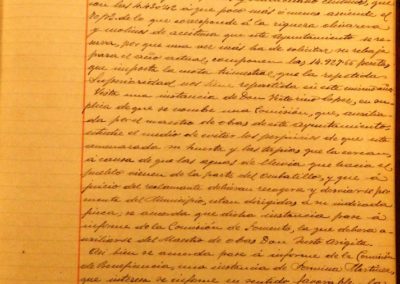 son las 4.443'42 á que poco más ó menos asciende el
20 p% de lo que corresponde á la riqueza olivarera
y molinos de aceituna que este Ayuntamiento se re-
serva, por que una vez más ha de solicitar su rebaja
para el año actual, componen las 14.927'66 pesetas
que importa la cuota trimestral, que la repetida
Superioridad nos tiene repartida en este mismo año.
Vista una instancia de Don Victorino Lopez, en sú-
plica de que se nombre una Comisión, que, auxilia-
da por el maestro de obras de este Ayuntamiento,
estudie el medio de evitar los perjuicios de que está
amenazada su huerta y las tapias que la cercan,
á causa de que las aguas de lluvia que hacia el
pueblo vienen de la parte del Ventalillo, y que á
juicio del reclamante debieran recogerse y desviarse por
cuenta del Municipio, estan dirigidas á su indicada
finca; se acuerda que dicha instancia pase á
informe de la Comisión de Fomento, la que deberá a-
uxiliarse del Maestro de obras Don Justo
Asi bien se acuerda pase á informe de la Comisión
de Beneficencia, una instancia de Martinez
que interesa se informe en sentido favorable la